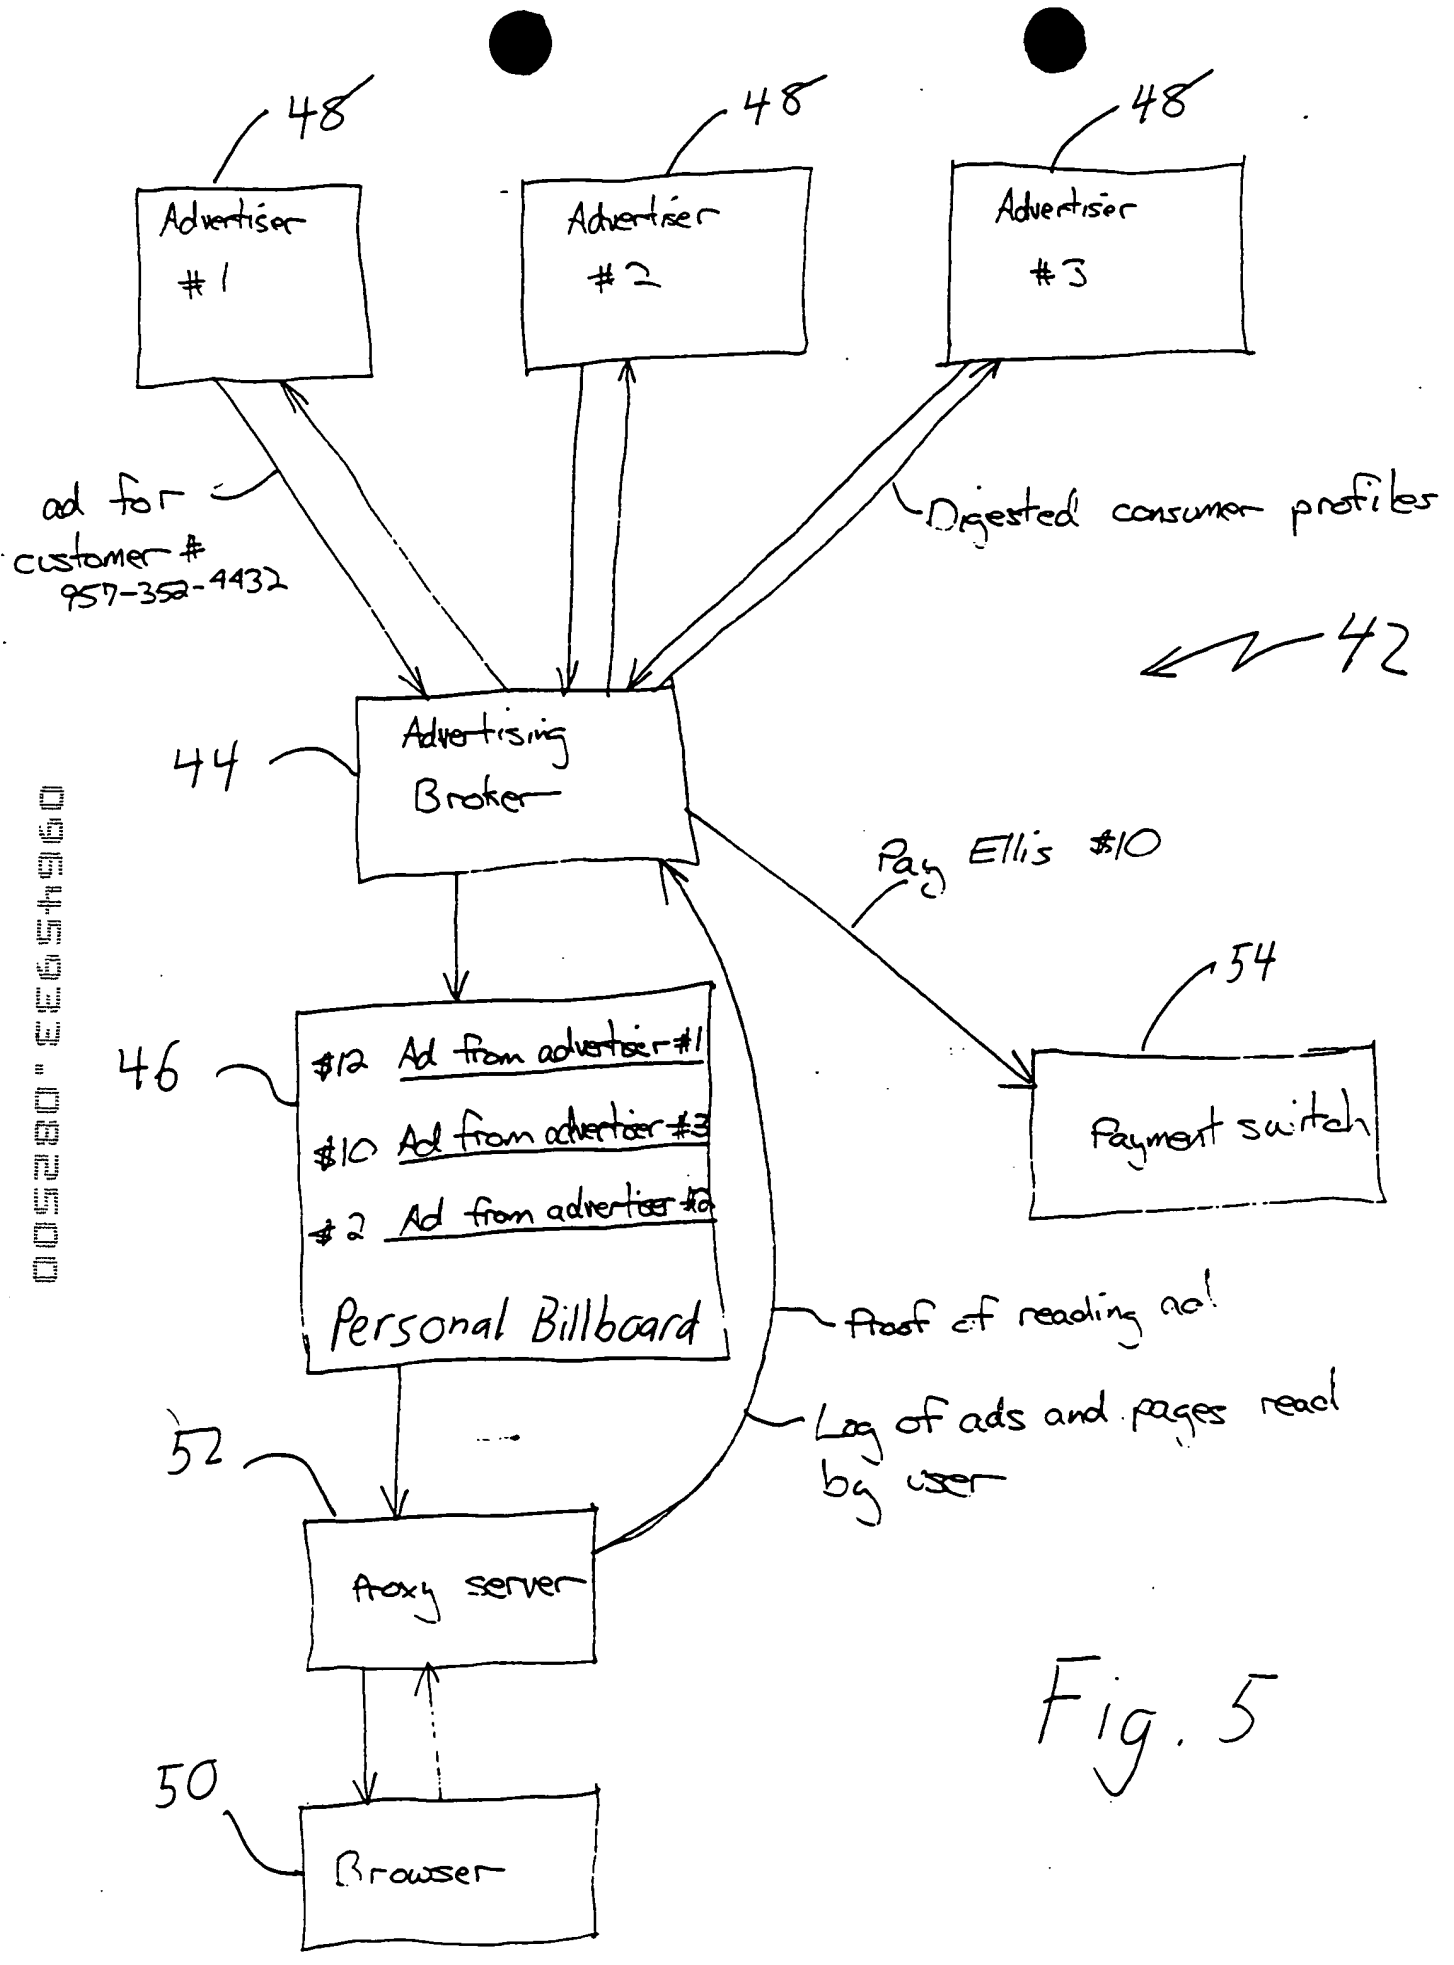 48 48 48
Advertiser
#1
Advertiser
#2
Advertiser
#3
ad for
customer #
957-352-4432
Digested consumer profiles
42
44
Advertising
Broker
Pay Ellis $10
54
Payment switch
46
$12 Ad from advertiser #1
$10 Ad from advertiser #3
$2 Ad from advertiser #2
Personal Billboard
Proof of reading ad
Log of ads and pages read
by user
52
Proxy server
50
Browser
Fig. 5
09654593.082500